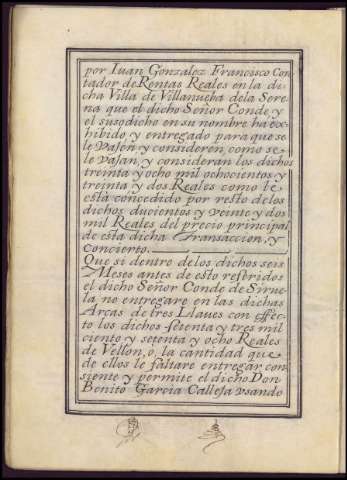 por Iuan Gonzalez Francisco Con
tador de Rentas Reales en la di
cha Villa de Villanueba dela Sere
na que el dicho Señor Conde, y
el susodicho en su nombre ha ex
hibido, y entregado para que se
le vajen y consideren, como se
le vajan, y consideran los dichos
treinta y ocho mil ochocientos y
treinta y dos Reales como le
està concedido por resto delos
dichos ducientos y veinte y dos
mil Reales del precio principal
de esta dicha Transaccion, y
Concierto.
Que si dentro de los dichos seis
Meses antes de esto referidos
el dicho Señor Conde de Sirue
la no entregare en las dichas
Arcas de tres Llaves con effec
to los dichos setenta y tres mil
ciento y setenta y ocho Reales
de Vellon, o, la cantidad que
de ellos le faltare entregar con
siente y permite el dicho Don
Benito Garcia Calleja vsando